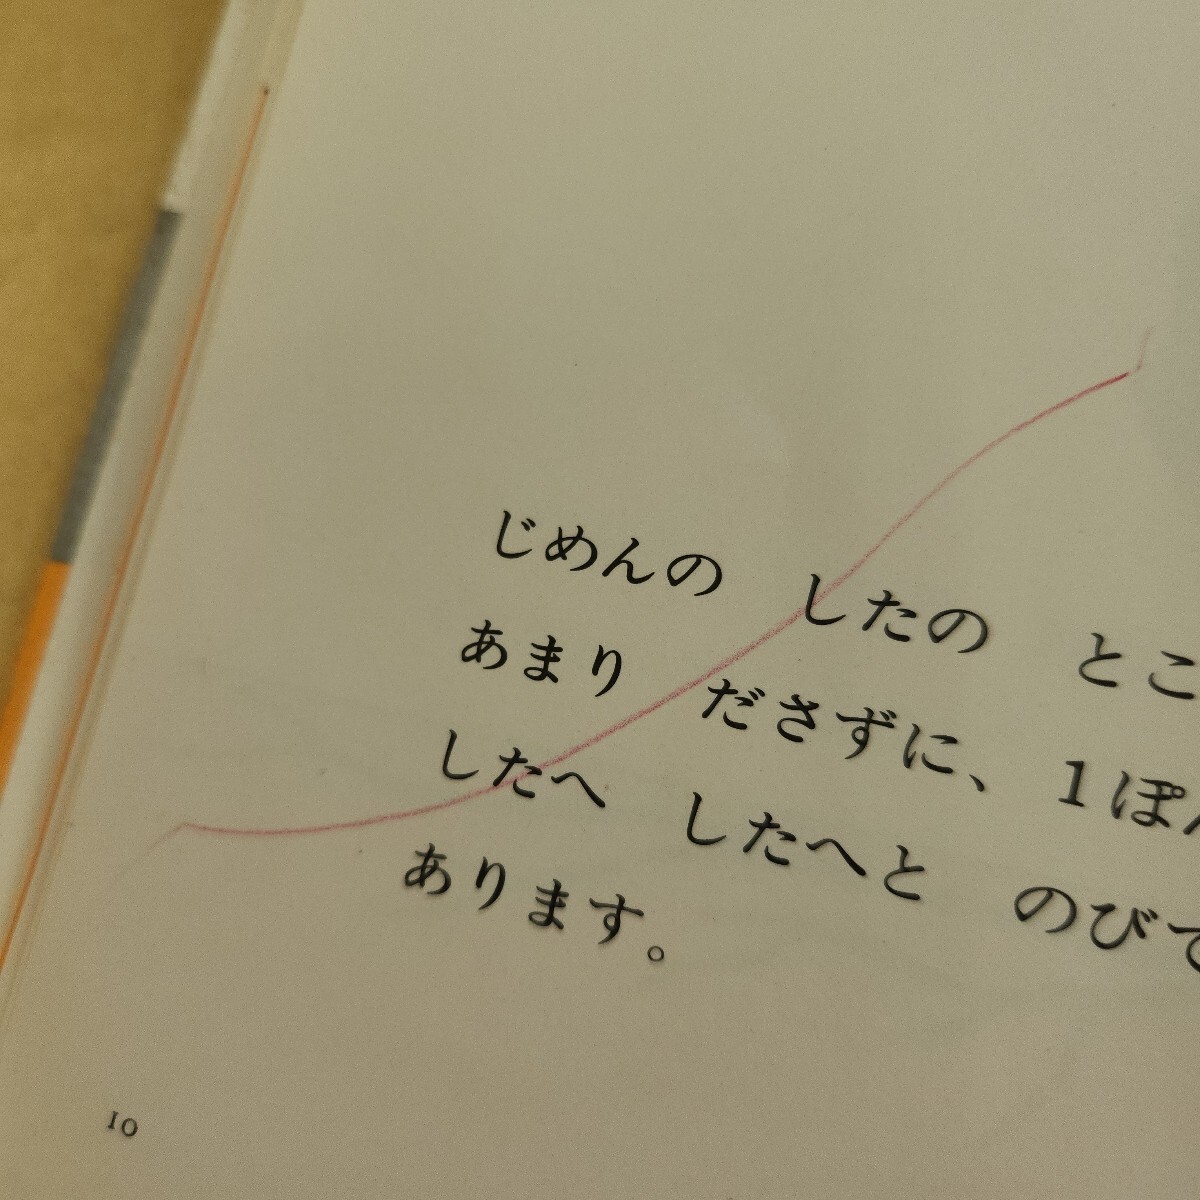 じめんの　したの　とこ
あまり　ださずに、1ぽん
したへ　したへと　のびて
あります。
10